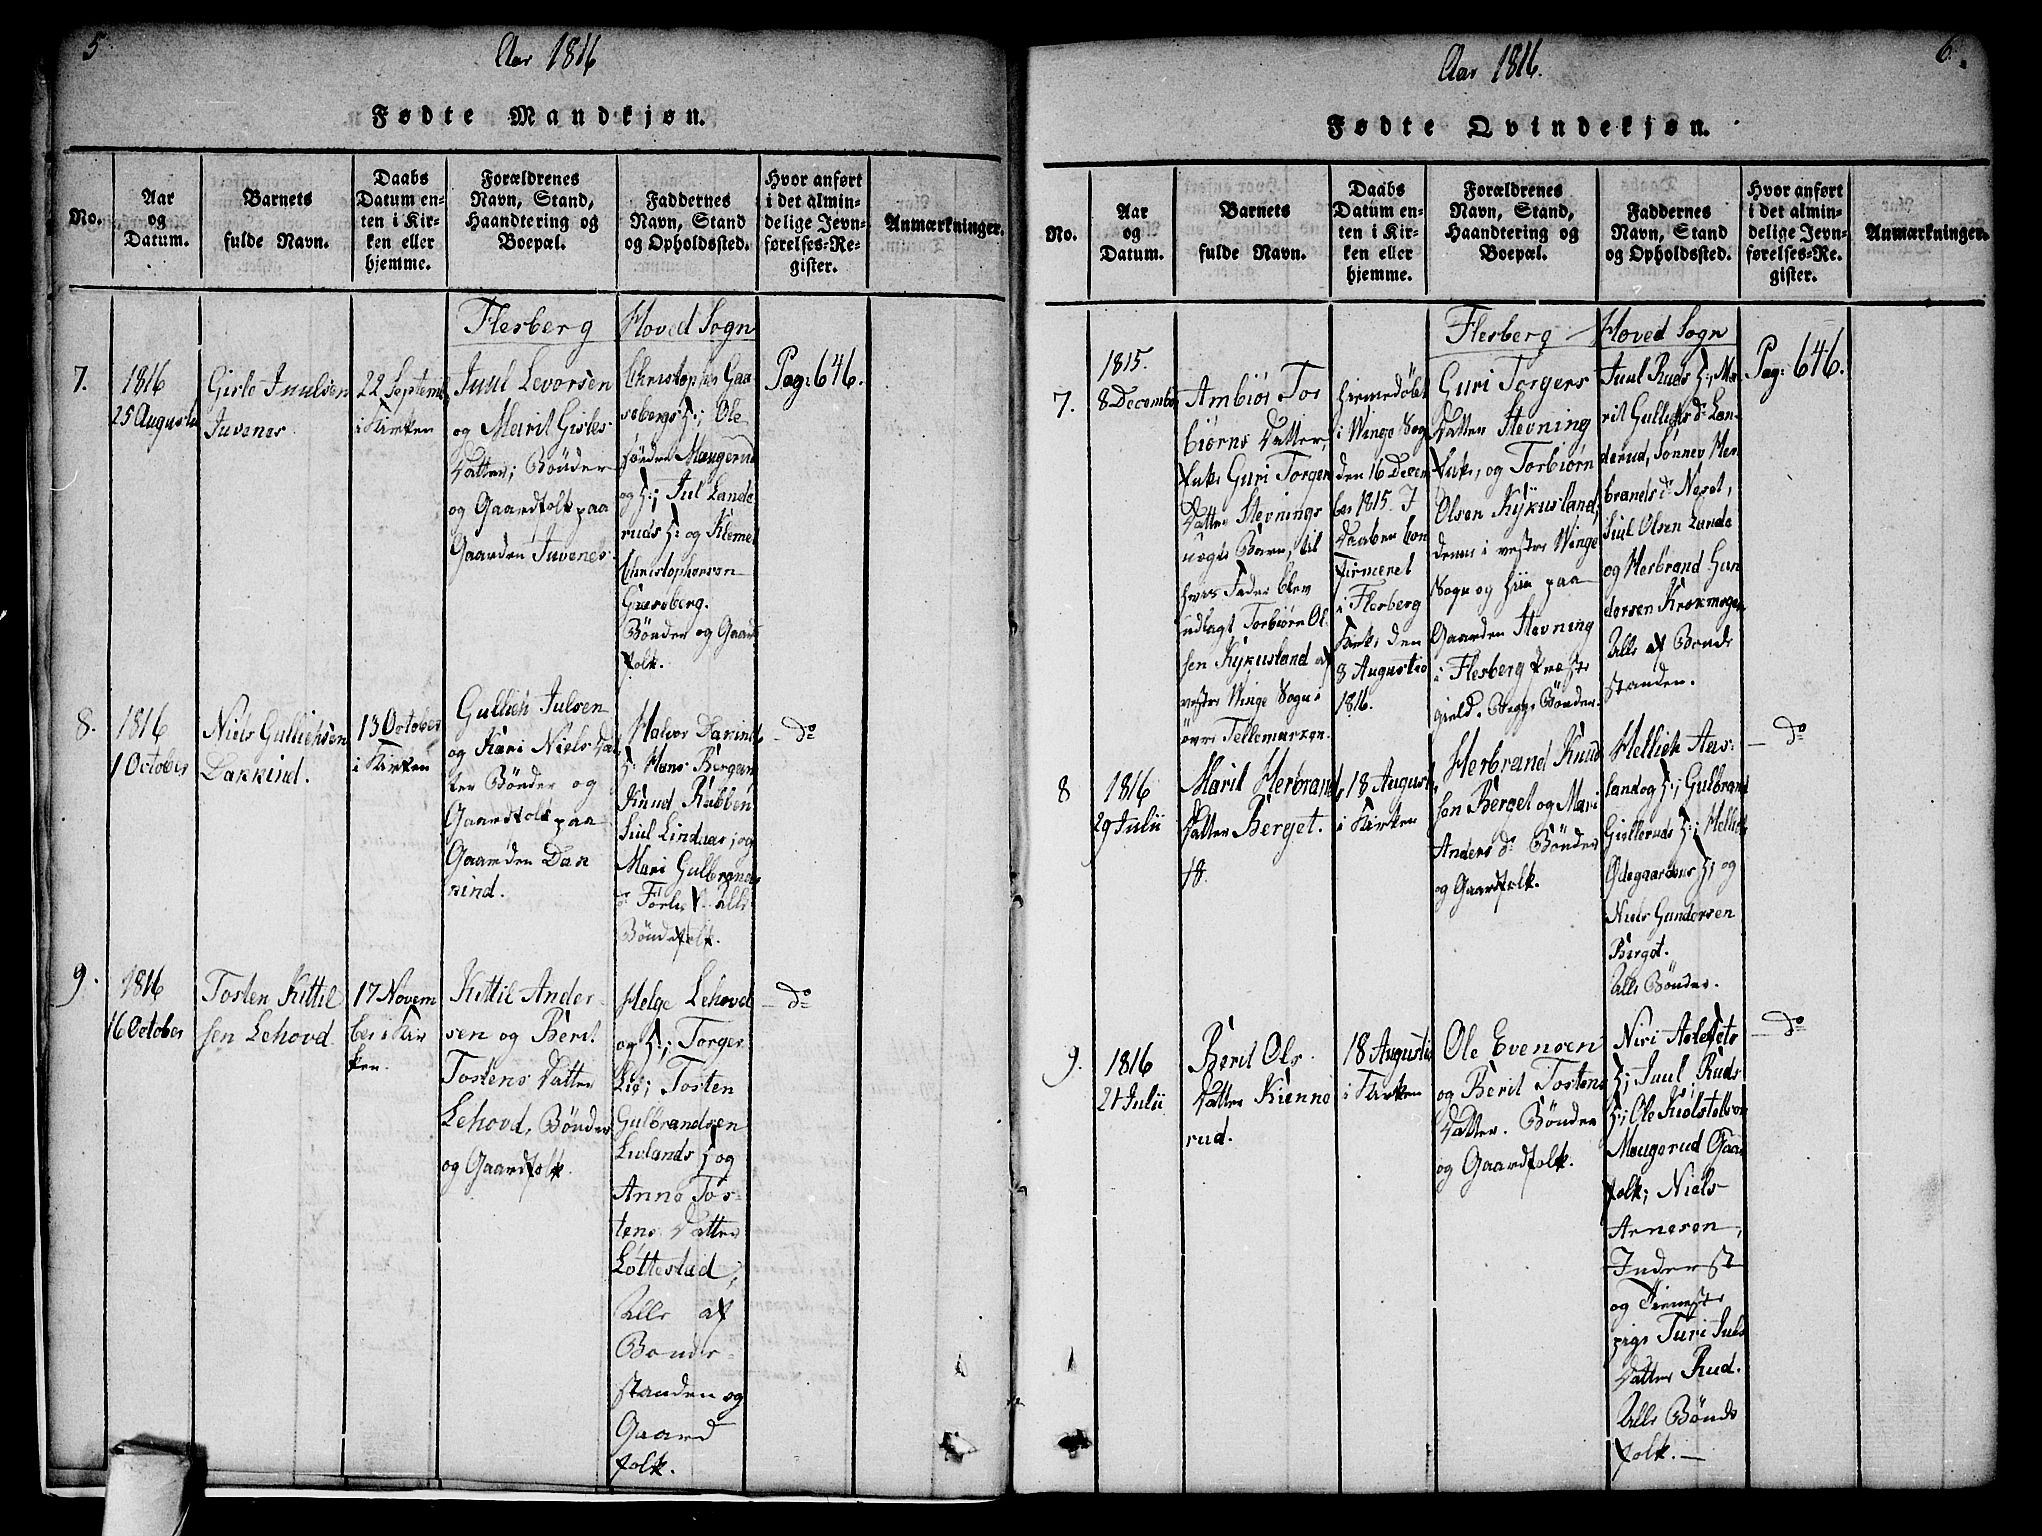 5
Aar 1816
Fødte Mandkjøn.
No.
Aar
og
Datum.
Barnets
fulde Navn.
Daabs
Datum en-
ten i Kir-
ken eller
hjemme.
Forældrenes
Navn, Stand,
Haandtering og
Boepæl.
Faddernes
Navn, Stand
og Opholdssted.
Hvor anført
i det almin-
delige Jevn-
førelses-Re-
gister.
Anmærkninger.
Flesberg Hoved Sogn
7.
1816
25 Augusti
Gisle Juulsen
Juvenes
22 Septemb
i Kirken
Juul Levorsen
og Marit Gisles
Datter; Bönder
og Gaardfolk paa
Gaarden Juvenes.
Christopher Gaa
sebergs H:; Ole
sönden Mougerud
og H:; Jul Lande
ruds H: og Klemet
Christophersen
Gaaseberg.
Bönder og Gaard
folk.
Pag: 646.
8.
1816
1 October
Niels Gullichsen
Dakkind.
13 October
i Kirken
Gullich Julsen
og Kari Niels Dat
ter Bönder og
Gaardfolk paa
Gaarden Dak
kind.
Halvor Dakind
H: Hans Bergan
Knud Rabben
Juul Lindaas; og
Mari Gulbrands
d: Förle. alle
Böndefolk.
d:o
9.
1816
16 October
Tosten Kittil
sen Lehovd
17 Novem
ber i Kir
ken.
Kittil Ander-
sen og Berit
Tostens Datter
Lehovd, Bönder
og Gaardfolk.
Helge Lehovd
og H:; Torger
Lie; Tosten
Gulbrandsen
Lulands H og
Anne Tos-
tens Datter
Löttestud;
Alle af
Bonde-
standen og
Gaard
folk.
d:o
6.
Aar 1816.
Fødte Qvindekjøn.
No.
Aar
og
Datum.
Barnets
fulde Navn.
Daabs
Datum en-
ten i Kir-
ken eller
hjemme.
Forældrenes
Navn, Stand,
Haandtering og
Boepæl.
Faddernes
Navn, Stand
og Opholdssted.
Hvor anført
i det almin-
delige Jevn-
førelses-Re-
gister.
Anmærkninger.
Flesberg Hoved Sogn
7.
1815.
8 December
Ambiör Tor
biörns Datter,
Enke Guri Torger
Datter Stevnings
uægte Barn, til
hvis Fader blev
udlagt Torbiörn Ol
sen Kykusland af
vestre Winge Sogn i
övre Tellemarken.
hiemmedöbt
i Winge Sog
den 16 Decem
ber 1815.
Daaben con
firmeret
i Flesberg
Kirke den
8 Augustio
1816.
Guri Torgers
Datter Stevning
Enke, og Torbiörn
Olsen Kykusland;
denne i vestre Winge
Sogn og hun paa
Gaarden Stevning
i Flesberg Præste
gield. Begge Bönder.
Juul Ruds H:; Ma
rit Gullichs d: Lan
derud, Sönnev Her
brands d: Neset,
Juul Olsen Lande
og Herbrand Gun
dersen Krokmogen
Alle af Bonde
standen.
Pag: 646.
8
1816
29 Julii
Marit Herbrands
Datter Berget.
18 August
i Kirken
Herbrand Knud
sen Berget og Mari
Anders d: Bönder
og Gaardfolk.
Hellich Aas-
land og H:; Gulbrand
Gisleruds H:; Hellich
Ødegaardens H; og
Niels Gundersen
Berget.
Alle Bönder.
d:o
9.
1816
21 Julii
Berit Ols
Datter Kienne
rud.
18 Augusti
i Kirken
Ole Evensen
og Berit Tostens
Datter. Bönder
og Gaardfolk.
Niri Aslefets
H; Juul Ruds
H:; Ole Kiölstelsen
Mougerud Gaar
folk; Niels
Arnesen,
Inderst
og Tieneste
pige Turi Juls
Datter Rud.
Alle Bönde
folk.—
d:o